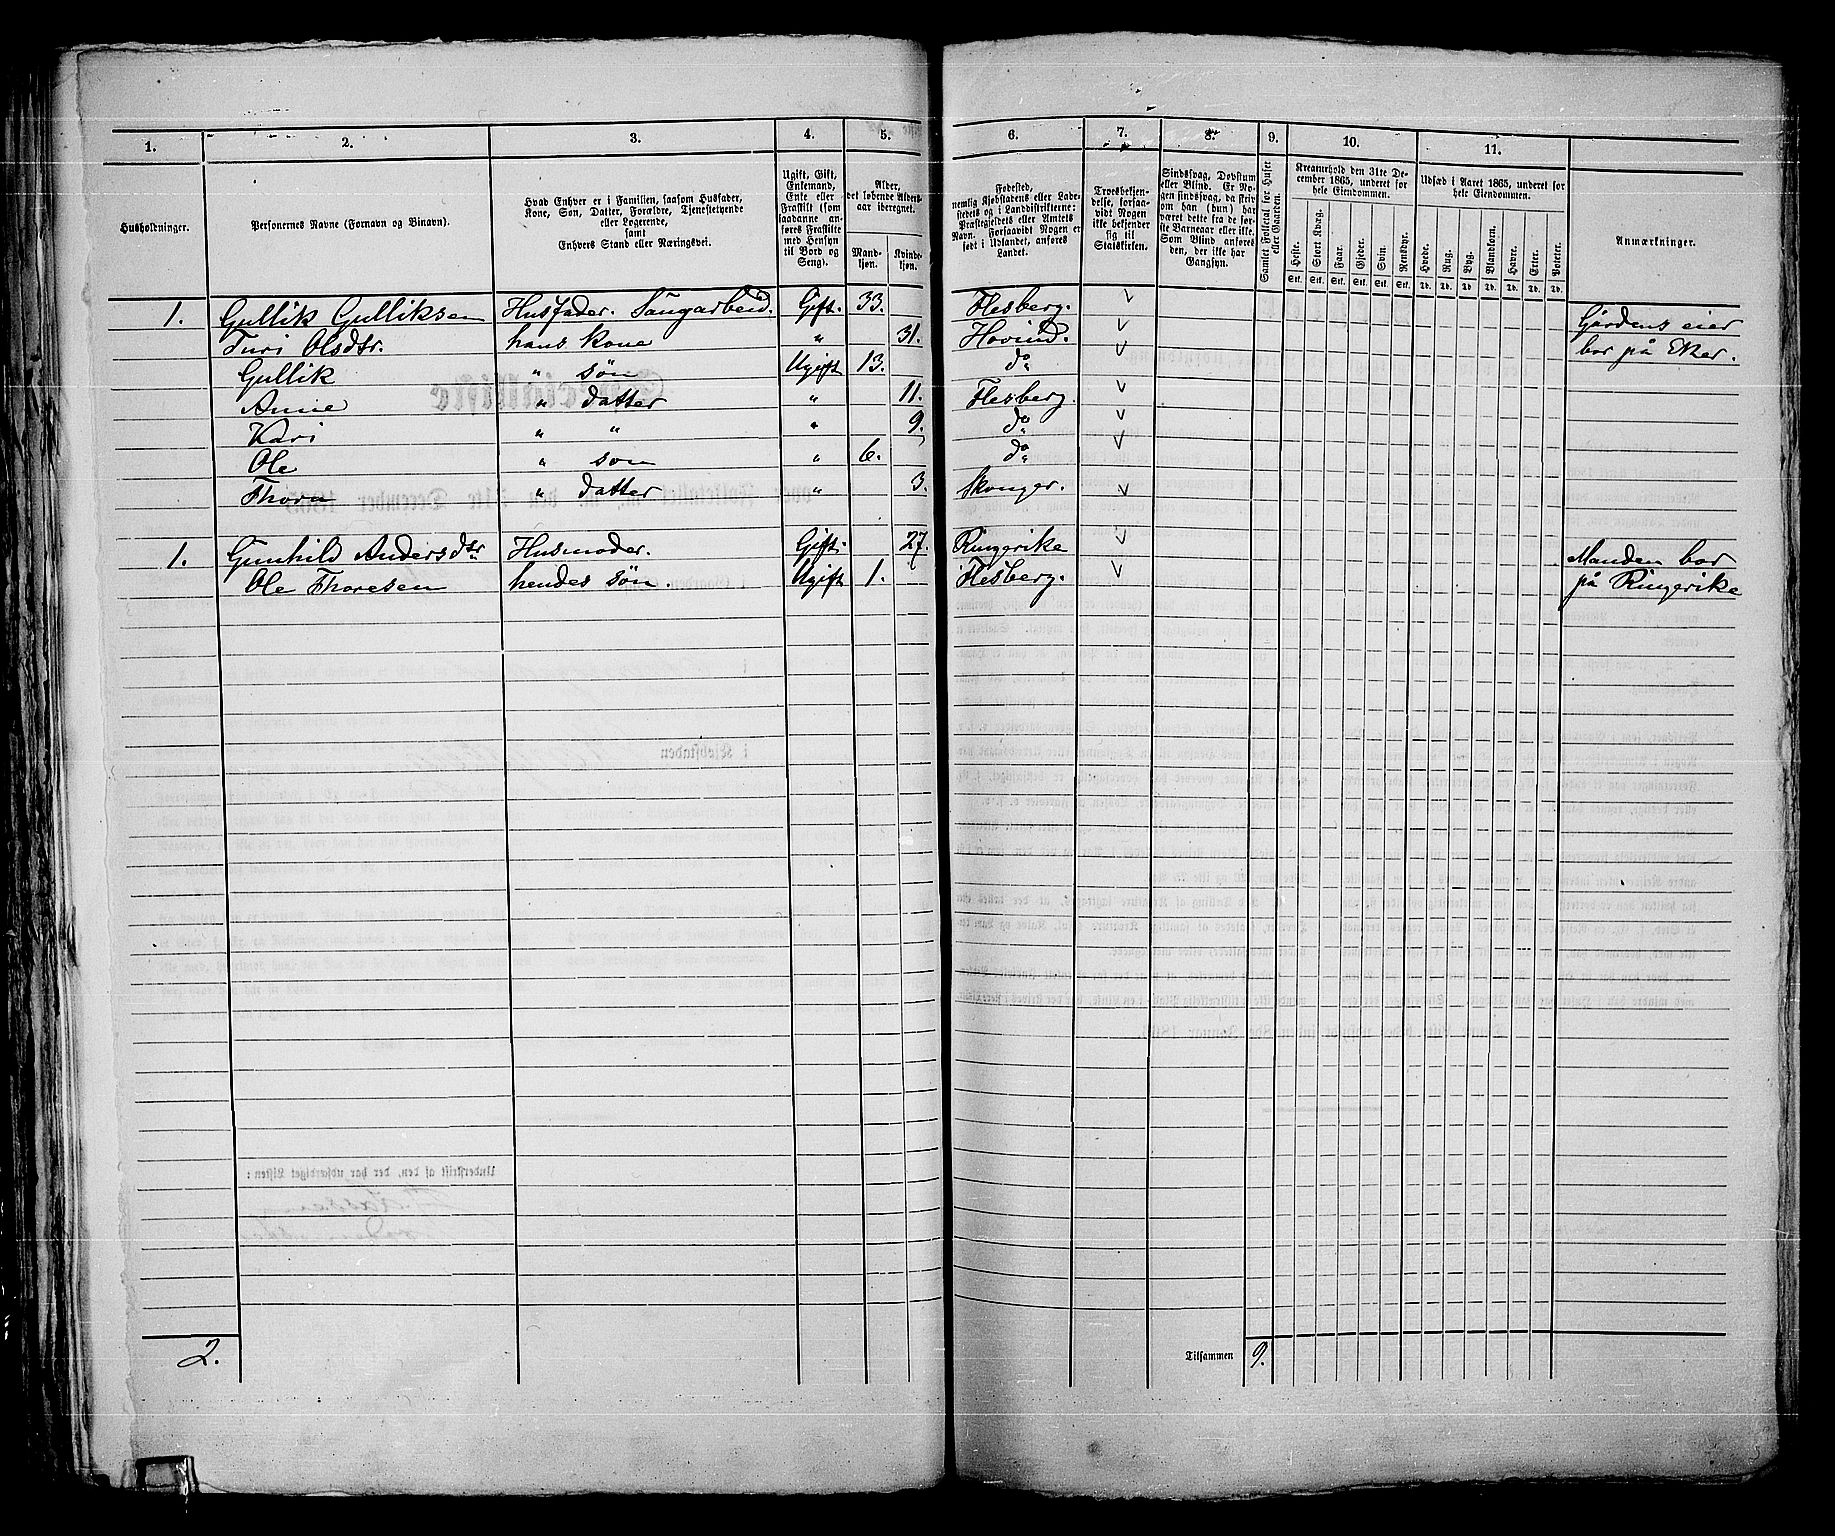 1. 2. 3. 4. 5. 6. 7. 8. 9. 10. 11.
Husholdninger.
Personernes Navne (Fornavn og Binavn).
Hvad Enhver er i Familien, saasom Husfader,
Kone, Søn, Datter, Forældre, Tjenestetyende
eller Logerende,
samt
Enhvers Stand eller Næringsvei.
Ugift, Gift,
Enkemand,
Enke eller
Fraskilt (som
saadanne an-
føres Fraskilte
med Hensyn
til Bord og
Seng).
Alder,
det løbende Alders-
aar iberegnet.
Mand-
kjøn.
Kvinde-
kjøn.
Fødested,
nemlig Kjøbstadens eller Lade-
stedets og i Landdistrikterne:
Præstegjeldets eller Amtets
Navn. Forsaavidt Nogen er
født i Udlandet, anføres
Landet.
Troesbekjen-
delse, forsaa-
vidt Nogen
ikke bekjender
sig til
Statskirken.
Sindssvag, Døvstum
eller Blind. Er No-
gen sindssvag, da skriv
om han (hun) har
været dette fra de før-
ste Barneaar eller ikke.
Som Blind anføres
den, der ikke har
Gangsyn.
Samlet Folketal for Huset
eller Gaarden.
Kreaturhold den 31te De-
cember 1865, underet for
hele Eiendommen.
Heste. Stort Kvæg. Faar. Gjeder. Svin. Rensdyr.
Stk. Stk. Stk. Stk. Stk. Stk.
Udsæd i Aaret 1865, underet for
hele Eiendommen.
Hvede. Rug. Byg. Blandkorn. Havre. Erter. Poteter.
Td. Td. Td. Td. Td. Td. Td.
Anmærkninger.
1. Gullik Gulliksen Husfader. Saugarbeid. Gift. 33. Flesberg. Gårdens eier
Turi Olsdtr. hans Kone " 31. Hovind. bor på Eker.
Gullik " søn Ugift 13. do
Anne " datter " 11. Flesberg.
Kari " " " 9. do
Ole " søn " 6. do
" datter " 3. Skonger.
1. Gunhild Andersdtr Husmoder. Gift. 27. Ringerike Manden bor
Ole Thoresen hendes søn. Ugift 1. Flesberg. på Ringerike
2. Tilsammen 9.